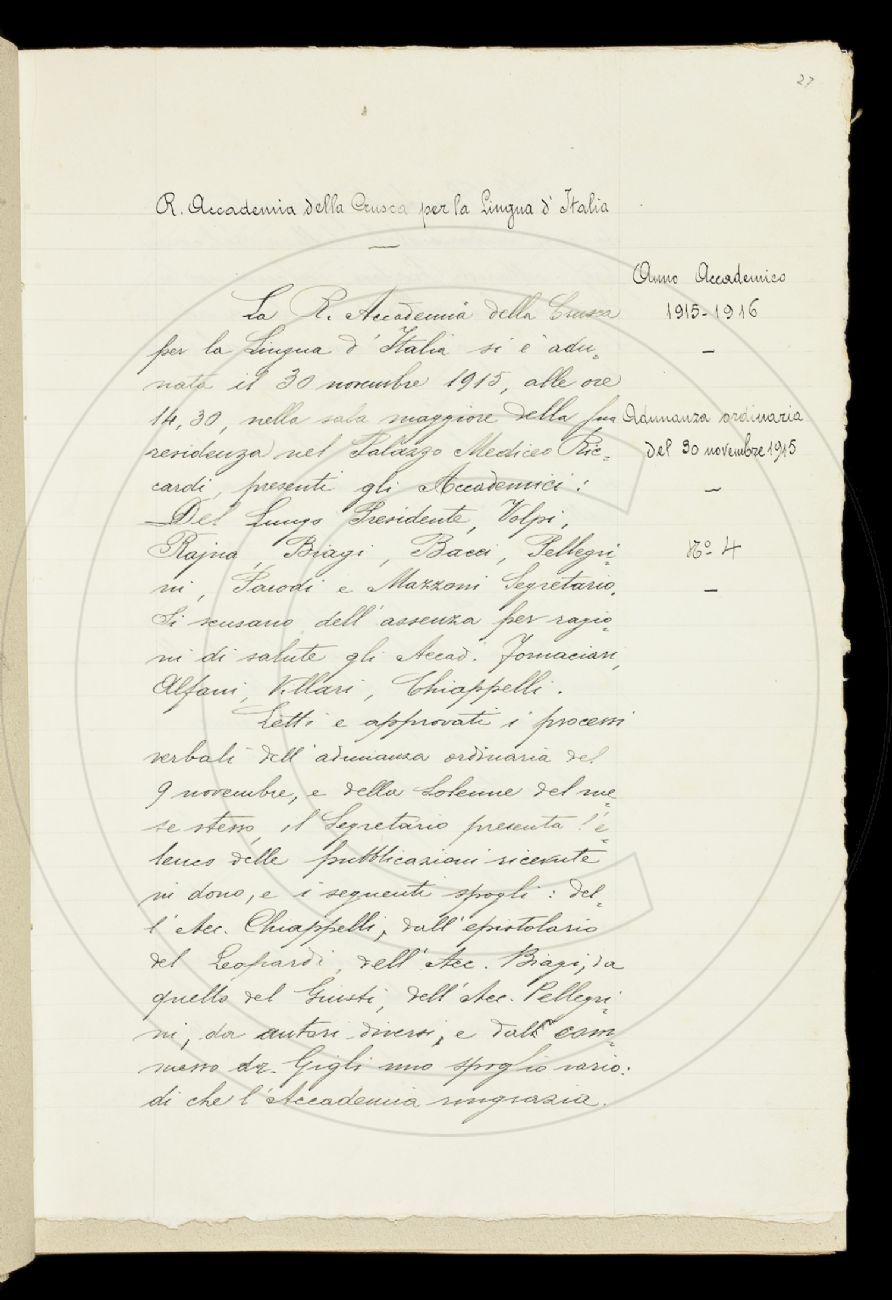 27
R. Accademia della Crusca per la Lingua d'Italia
Anno Accademico
1915-1916
Adunanza ordinaria
del 30 novembre 1915
No 4
La R. Accademia della Crusca
per la Lingua d'Italia si è adu-
nata il 30 novembre 1915, alle ore
14,30, nella sala maggiore della sua
residenza nel Palazzo Mediceo Ric-
cardi, presenti gli Accademici:
Del Lungo Presidente, Volpi,
Rajna, Biagi, Bacci, Pellegri-
ni, Parodi e Mazzoni Segretario.
Si scusano dell'assenza per ragio-
ni di salute gli Accad. Fornaciari,
Alfani, Villari, Chiappelli.
Letti e approvati i processi
verbali dell'adunanza ordinaria del
9 novembre, e della Solenne del me-
se stesso, il Segretario presenta l'e-
lenco delle pubblicazioni ricevute
in dono, e i seguenti spogli: del-
l'Acc. Chiappelli, dall'epistolario
del Leopardi, dell'Acc. Biagi, da
quello del Giusti, dell'Acc. Pellegri-
ni, da autori diversi, e dal com-
messo dr. Gigli uno spoglio vario:
di che l'Accademia ringrazia.